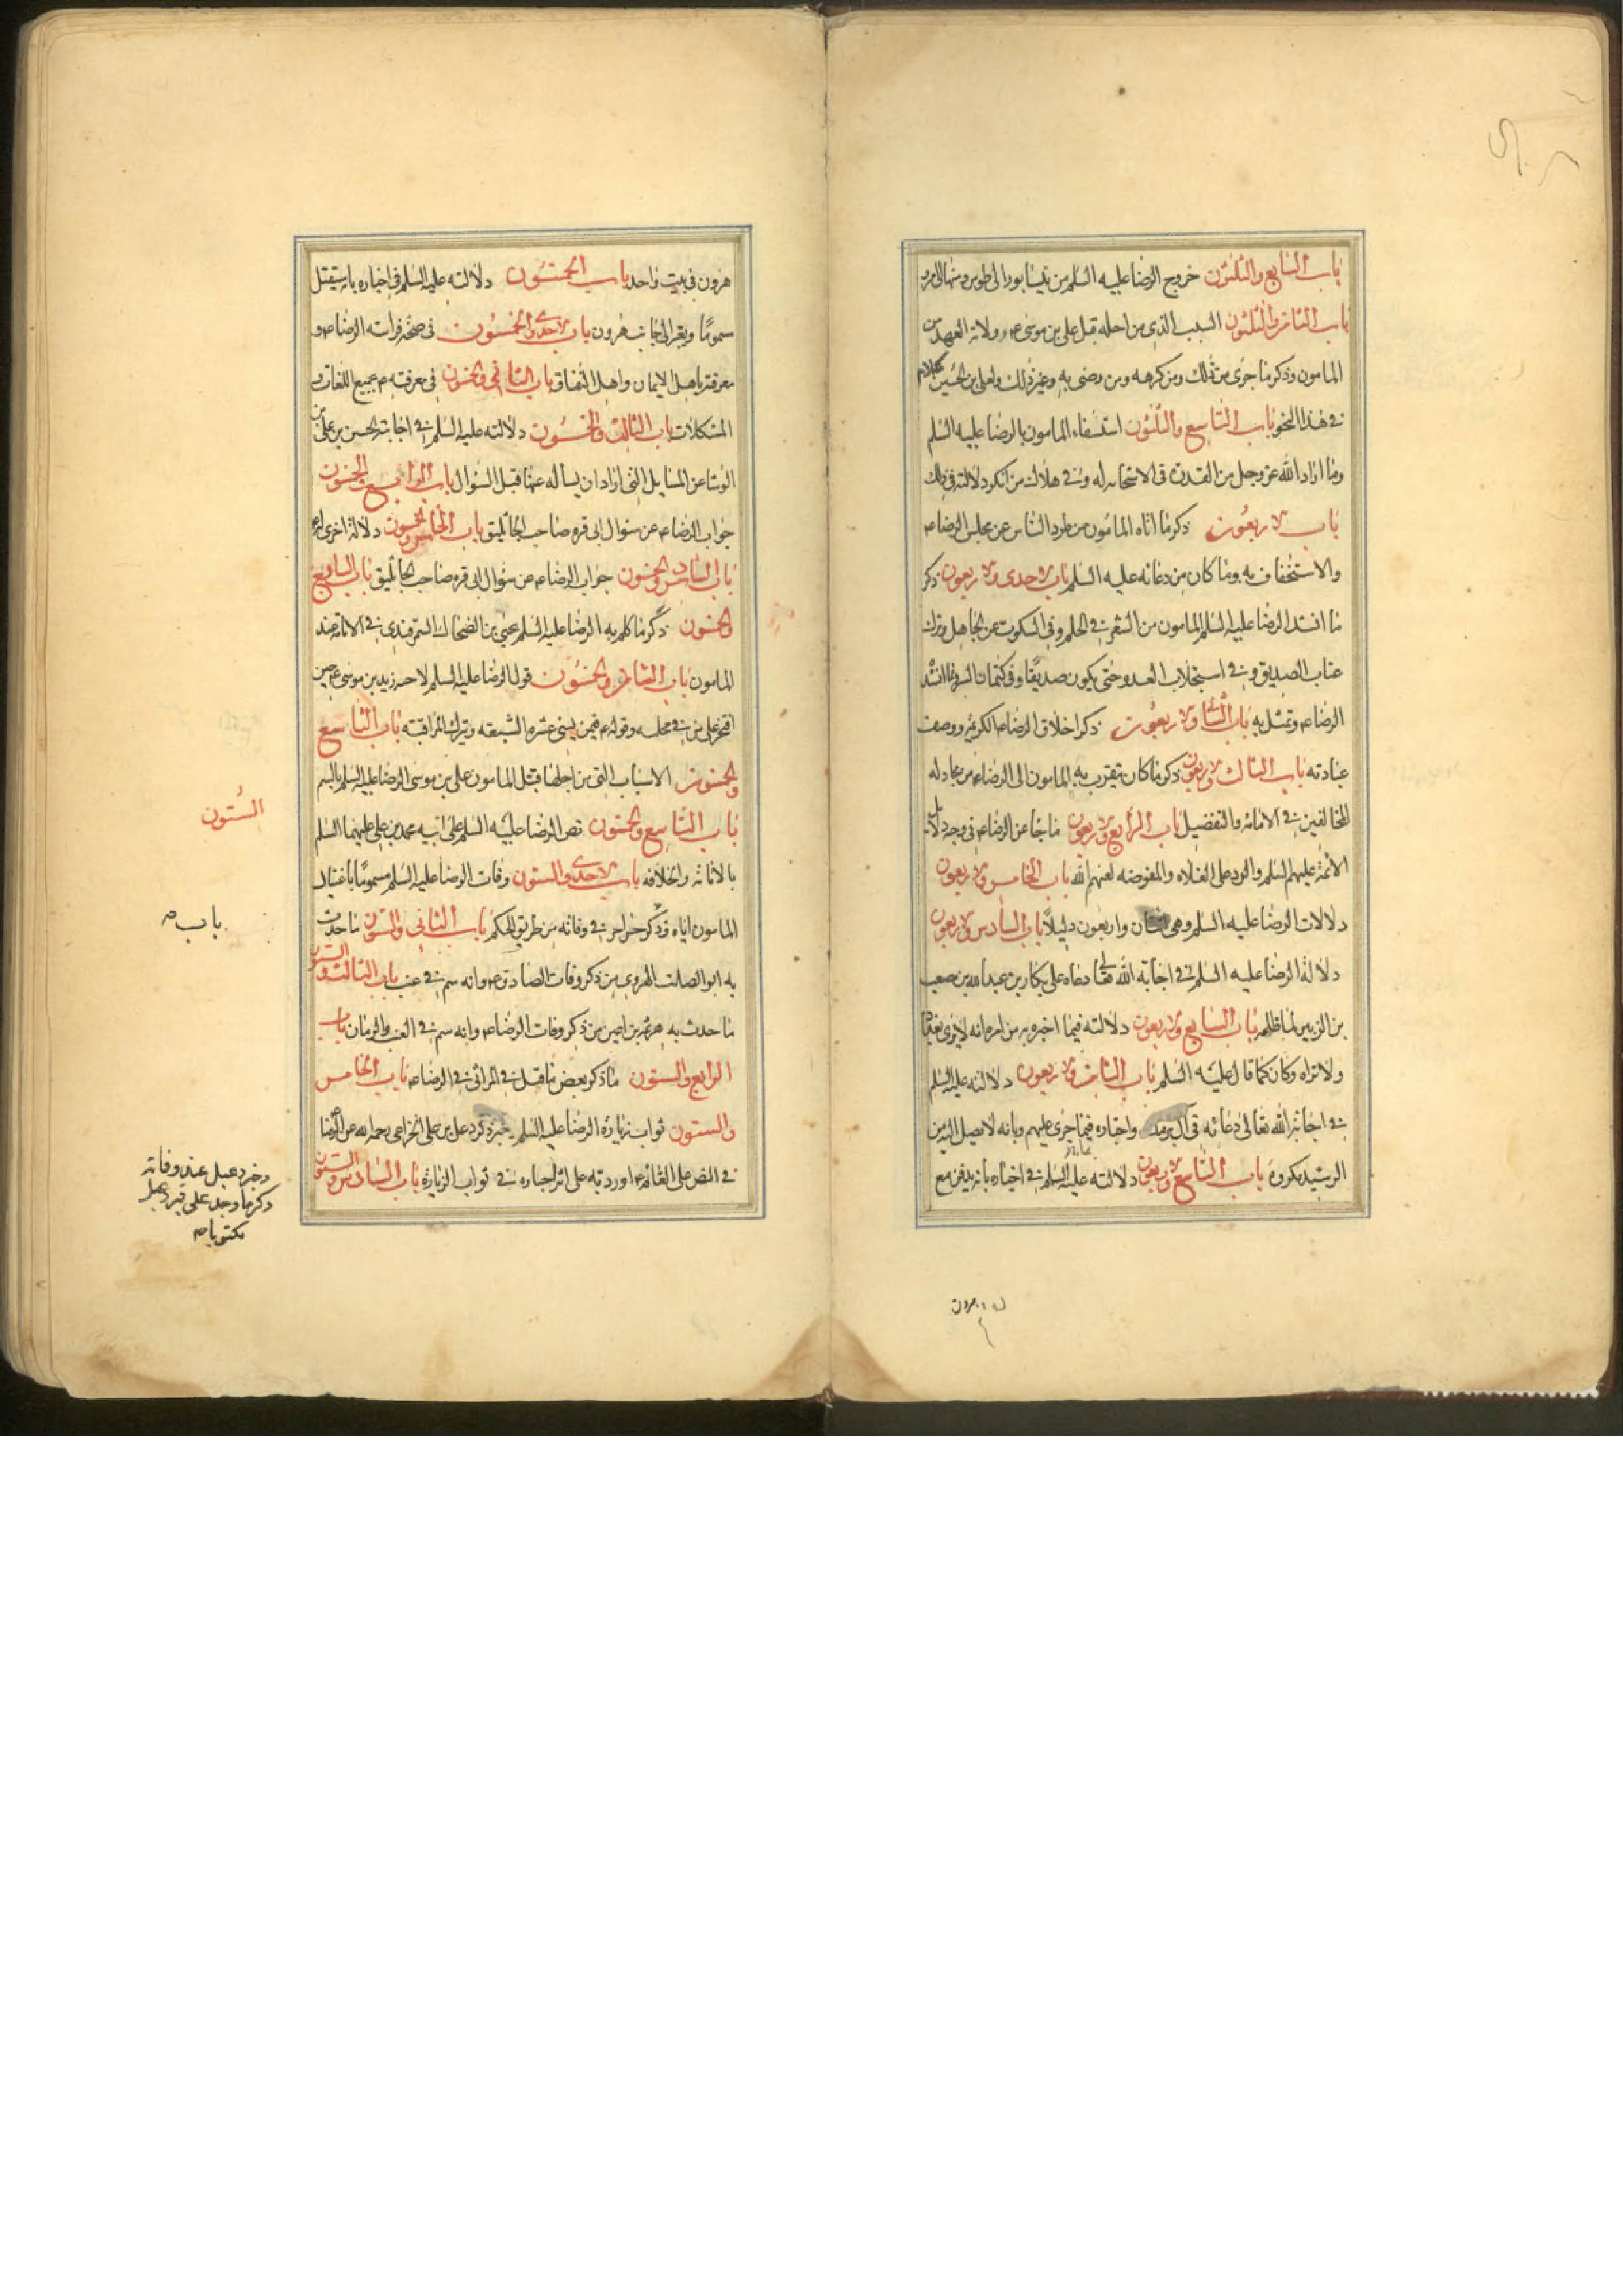 باب السابع والثلثون خروج الرضا عليه السلم من نيسابور الى طوس ومنها الى مرو
باب الثامن والثلثون السبب الذى من اجله قبل على بن موسى ع م ولاية العهد من
المامون وذكر ما جرى من ذلك ومن كرهه ومن رضى به وغير ذلك ولعلى بن الحسين كلام
فى هذا النحو باب التاسع والثلثون استسقاء المامون بالرضا عليه السلم
وما اراد الله عز وجل من القدرة فى الاستجابه له وفى هلاك من انكر دلالته فى ذلك
باب الاربعون ذكر ما اتاه المامون من طرد الناس عن مجلس الرضا ع م
والاستخفاف به وما كان من دعائه عليه السلم باب الاحدى والاربعون ذكر
ما انشد الرضا عليه السلم المامون من الشعر فى الحلم وفى السكوت عن الجاهل وترك
عتاب الصديق وفى استجلاب العدو حتى يكون صديقا وفى كتمان السر وما انشد
الرضا ع م وتمثل به باب الثانى والاربعون ذكر اخلاق الرضا ع م الكريمة ووصف
عبادته باب الثالث والاربعون ذكر ما كان يتقرب به المامون الى الرضا ع م من مجادله
المخالفين فى الامامه والتفضيل باب الرابع والاربعون ما جا عن الرضا ع م فى وجه دلايل
الائمة عليهم السلم والرد على الغلاه والمفوضه لعنهم الله باب الخامس والاربعون
دلالات الرضا عليه السلم وهى اثنان واربعون دليلا باب السادس والاربعون
دلالة الرضا عليه السلم فى اجابة الله تعالى دعاه على بكار بن عبد الله بن مصعب
بن الزبير لما ظلمه باب السابع والاربعون دلالته فيما اخبر به من امره انه لا يرى بغداد
ولا تراه وكان كما قال عليه السلم باب الثامن والاربعون دلالته عليه السلم
فى اجابة الله تعالى دعائه فى ال برمك واخباره فيما جرى عليهم وبانه لا يصل اليه من
الرشيد مكروه باب التاسع والاربعون دلالته عليه السلم فى اخباره بانه يدفن مع
هرون فى بيت واحد باب الخمسون دلالته عليه السلم فى اخباره بانه سيقتل
سموما ويقبر الى جانب هرون باب الاحدى والخمسون فى صحة فراسته الرضا ع م و
معرفته باهل الايمان واهل النفاق باب الثانى والخمسون فى معرفته ع م بجميع اللغات و
المشكلات باب الثالث والخمسون دلالته عليه السلم فى اجابته الحسن بن على بن
الوشا عن المسايل التى اراد ان يساله عنها قبل السؤال باب الرابع والخمسون
جواب الرضا ع م عن سؤال ابى قره صاحب الجاثليق باب الخامس والخمسون دلالة اخرى له ع م
باب السادس والخمسون جواب الرضا ع م عن سؤال ابى قره صاحب الجاثليق باب السابع
والخمسون ذكر ما كلم به الرضا عليه السلم يحيى بن الضحاك السمرقندى فى الامامة عند
المامون باب الثامن والخمسون قول الرضا عليه السلم لاخيه زيد بن موسى ع م حين
افتخر على من فى مجلسه وقوله ع م فيمن يسئ عشرة الشيعه ويترك المراقبته باب التاسع
والخمسون الاسباب التى من اجلها قتل المامون على بن موسى الرضا عليه السلم بالسم
باب التاسع والخمسون نص الرضا عليه السلم على ابنه محمد بن على عليهما السلم
الستون
بالامامة والخلافه باب الاحدى والستون وفات الرضا عليه السلم مسموما باغتيال
المامون اياه وذكر خبر اخر فى وفاته من طريق الحكم باب الثانى والستون ما حدث
باب ص
به ابو الصلت الهروى من ذكر وفات الصادق ع م وانه سم فى عنب باب الثالث والستون
ما حدث به هرثمة بن اعين من ذكر وفات الرضا ع م وانه سم فى العنب والرمان باب
الرابع والستون ما ذكر بعض ما قيل فى المراثى فى الرضا ع م باب الخامس
والستون ثواب زيارة الرضا عليه السلم خبر ذكر دعبل بن على الخزاعى رحمه الله عن الرضا
فى النص على القائم ع م اوردته على اثر اخباره فى ثواب الزيارة باب السادس والستون
وخبر دعبل عند وفاته
ذكر ما وجد على قبر دعبل
مكتوبا ص